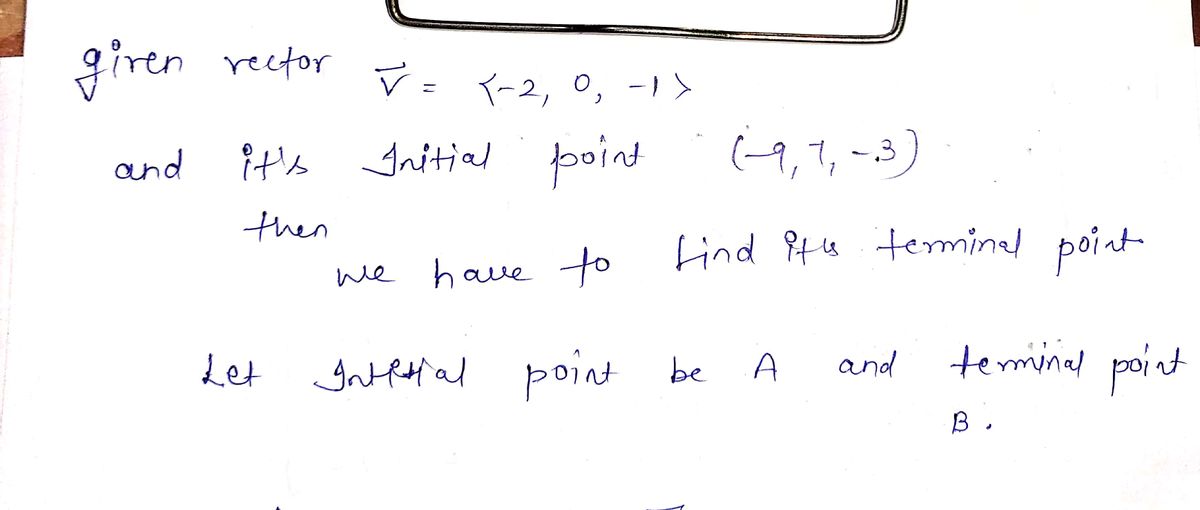 given vector v⃗ = <-2, 0, -1>
and it's Initial point (-9, 7, -3)
then
we have to find it's terminal point
Let Initial point be A and terminal point
B.